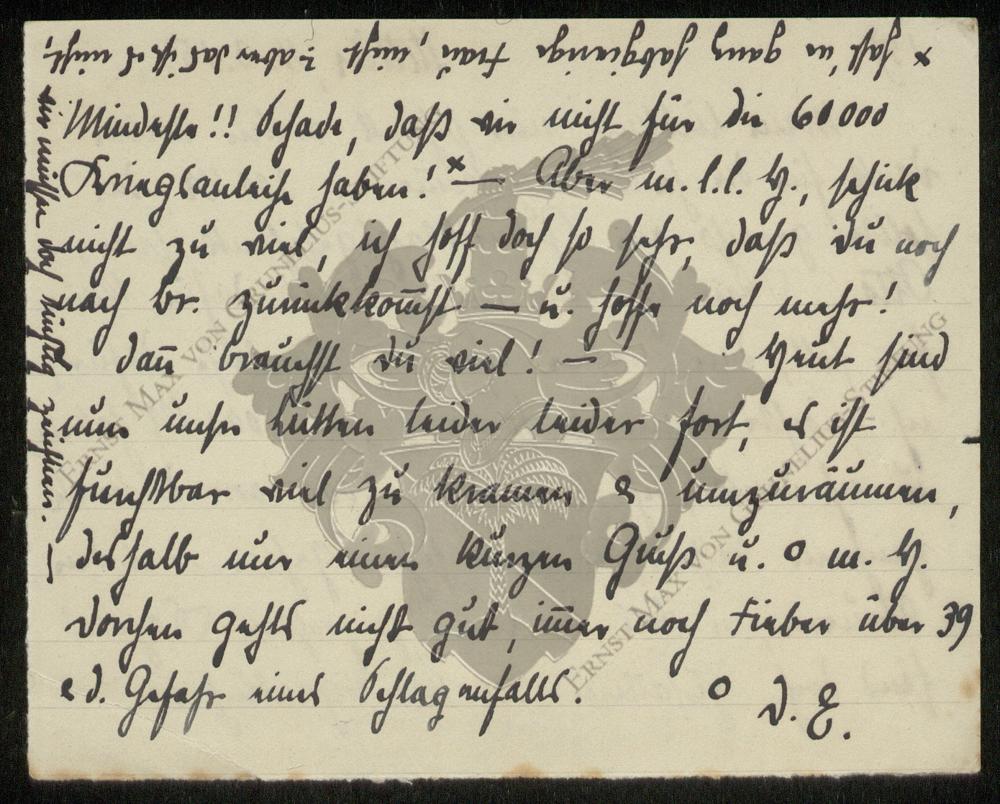 Mindeste!! Schade, daß wir nicht für die 60000
Kriegsanleihe haben! x — Aber m. l. l. H., schick
nicht zu viel, ich hoff doch so sehr, daß du noch
nach Br. zurückkom̅st — u. hoffe noch mehr!
dan̅ brauchst du viel! — Heut sind
nun unsre leider leider fort, es ist
furchtbar viel zu kramen & umzuräumen,
deshalb nur einen kurzen Gruß u. o m. H.
Dorchen gehts nicht gut, im̅er noch Fieber über 39
& d. Gefahr eines Schlaganfalls. o D. E.
x hast 'ne ganz habgierige Frau, nicht? aber das ist es nicht,
wir müssen doch tüchtig zeichnen. —
ERNST MAX VON GRUNELIUS-STIFTUNG
ERNST MAX VON GRUNELIUS-STIFTUNG